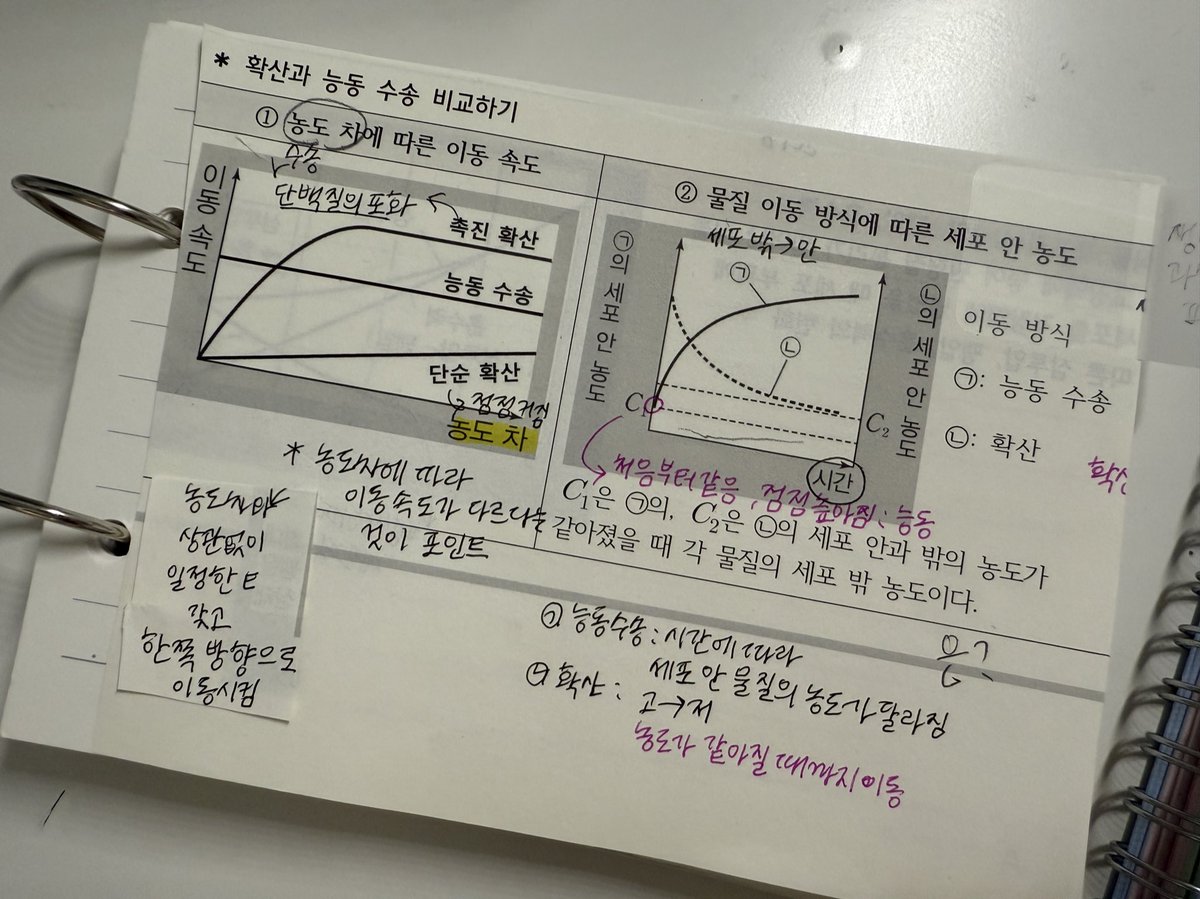 * 확산과 능동 수송 비교하기
① 농도 차에 따른 이동 속도
수송
단백질의 포화
이동 속도
촉진 확산
능동 수송
단순 확산
점점 커짐
농도 차
* 농도차에 따라
이동속도가 다르다는
것이 포인트
농도차이
상관없이
일정한 E
갖고
한쪽 방향으로
이동시킴
② 물질 이동 방식에 따른 세포 안 농도
세포 밖→안
㉠의 세포 안 농도
㉠
㉡
㉡의 세포 안 농도
C₁
C₂
시간
이동 방식
㉠: 능동 수송
㉡: 확산
확산
처음부터같음, 점점 높아짐: 능동
C₁은 ㉠의, C₂은 ㉡의 세포 안과 밖의 농도가
같아졌을 때 각 물질의 세포 밖 농도이다.
㉠ 능동수송: 시간에 따라
세포 안 물질의 농도가 달라짐
㉡ 확산: 고→저
농도가 같아질 때까지 이동